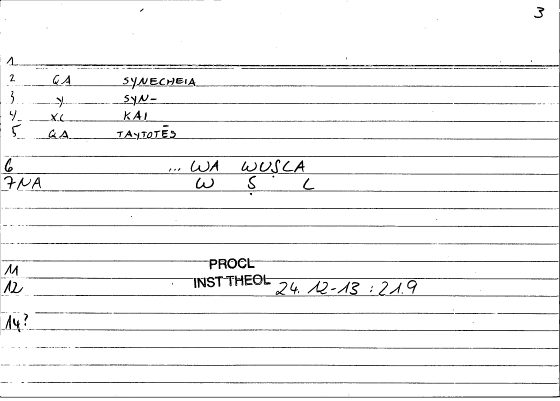 3
1
2 QA SYNECHEIA
3 Y SYN-
4 XC KAI
5 QA TAYTOTĒS
6 ... WA WUṢLA
7 NA W Ṣ L
11 PROCL
12 INST THEOL 24.12-13 : 21.9
14?